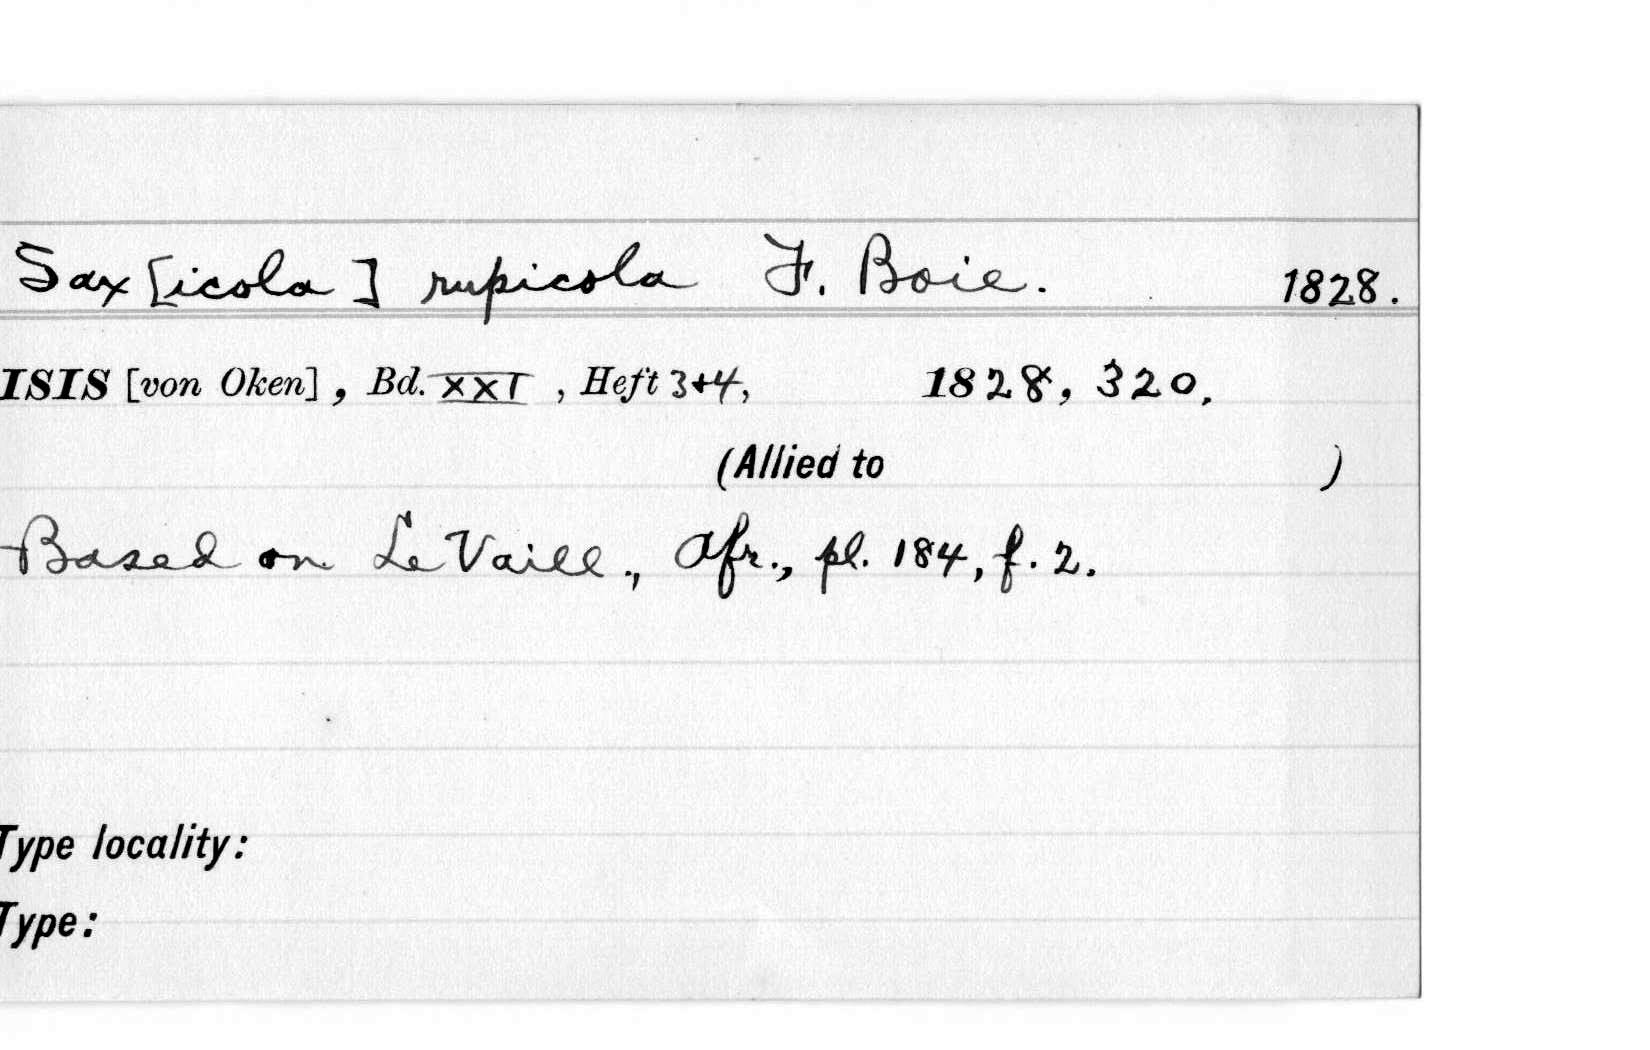 Sax[icola] rupicola F. Boie. 1828.
ISIS [von Oken], Bd. XXI, Heft 3+4, 1828, 320.
(Allied to )
Based on Le Vaill., Afr., pl. 184, f. 2.
Type locality:
Type: